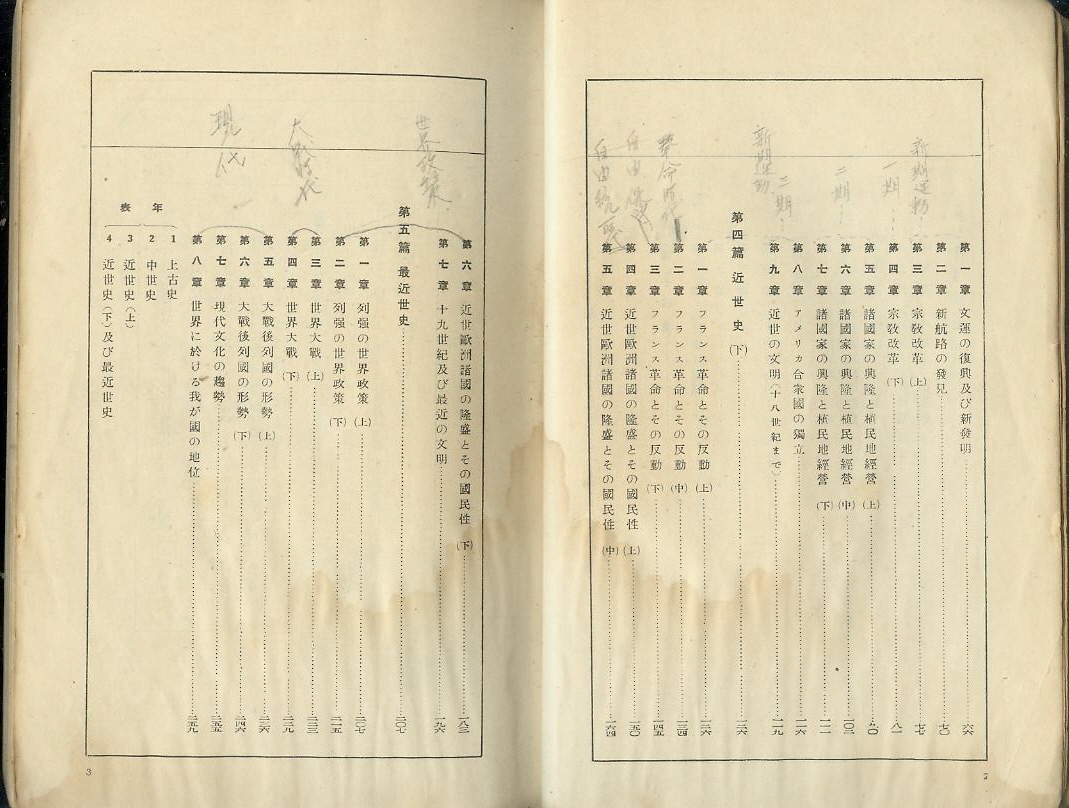 第一章 文運の復興及び新發明 六六
第二章 新航路の發見 七〇
第三章 宗教改革(上) 七七
第四章 宗教改革(下) 八一
第五章 諸國家の興隆と植民地經營(上) 九〇
第六章 諸國家の興隆と植民地經營(中) 一〇三
第七章 諸國家の興隆と植民地經營(下) 一一一
第八章 アメリカ合衆國の獨立 一一六
第九章 近世の文明(十八世紀まで) 一一九
第四篇 近世史(下) 一二六
第一章 フランス革命とその反動(上) 一二六
第二章 フランス革命とその反動(中) 一三四
第三章 フランス革命とその反動(下) 一四五
第四章 近世歐洲諸國の隆盛とその國民性(上) 一五〇
第五章 近世歐洲諸國の隆盛とその國民性(中) 一六四
新期運動
一期
二期
三期
革命時代
自由
自由
2
第六章 近世歐洲諸國の隆盛とその國民性(下) 一八三
第七章 十九世紀及び最近の文明 一九六
第五篇 最近世史 二〇七
第一章 列强の世界政策(上) 二〇七
第二章 列强の世界政策(下) 二一五
第三章 世界大戰(上) 二二三
第四章 世界大戰(下) 二二九
第五章 大戰後列國の形勢(上) 二三六
第六章 大戰後列國の形勢(下) 二四六
第七章 現代文化の趨勢 二五五
第八章 世界に於ける我が國の地位 二五九
年表
1 上古史
2 中世史
3 近世史(上)
4 近世史(下)及び最近世史
世界政策
大戰時代
現代
3